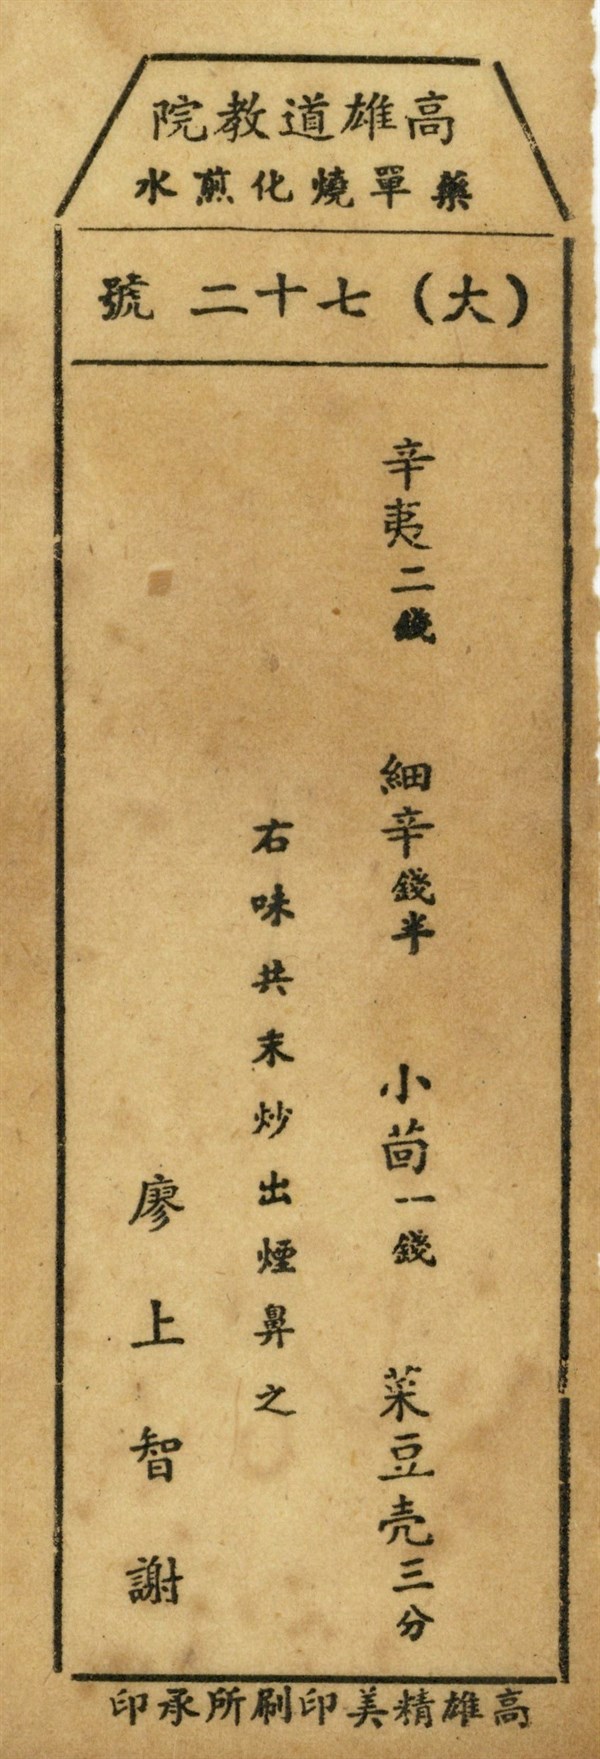 高雄道教院
藥單燒化煎水
(大)七十二號
辛夷二錢 細辛錢半 小茴一錢 菜豆壳三分
右味共末炒出煙鼻之
廖上智謝
高雄精美印刷所承印